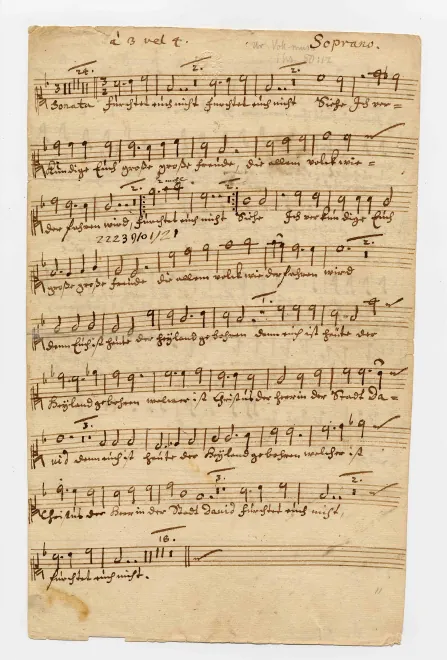 à 3 vel 4. Soprano.
24. 2. 2.
Sonata Fürchtet euch nicht fürchtet euch nicht Siehe Ich ver=
kündige Euch große große freude die allem volck wie=
2. 2 mahl 2.
der fahren wird, fürchtet euch nicht Siehe Ich verkündige Euch
22239/01/21
große große freude die allem volck wiederfahren wird
2.
1.
denn Euch ist heute der heyland gebohren denn euch ist heute der
Heyland gebohren welcher ist Christus der herr in der Stadt Da=
3.
vid denn euch ist heute der Heyland gebohren welcher ist
3. 2.
Christus der Herr in der Stadt David fürchtet euch nicht
18.
fürchtet euch nicht.